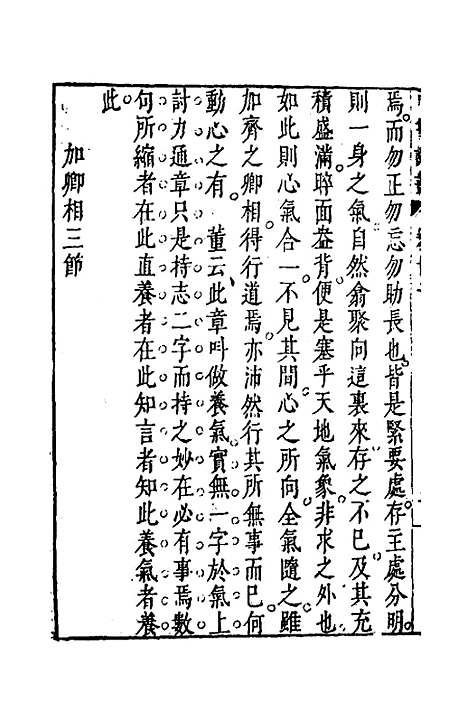 焉。而勿正勿忘勿助長也。皆是緊要處。存主處分明。
則一身之氣自然翕聚向這裏來存之不已及其充
積盛滿睟面盎背便是塞乎天地氣象。非求之外也
如此則心氣合一不見其間心之所向全氣隨之。雖
加齊之卿相。得行道焉。亦沛然行其所無事而已。何
動心之有。董云、此章叫做養氣。實無一字於氣上
討力。通章只是持志二字。而持之妙在必有事焉數
句。所縮者在此。直養者在此。知言者知此。養氣者養
此。
加卿相三節